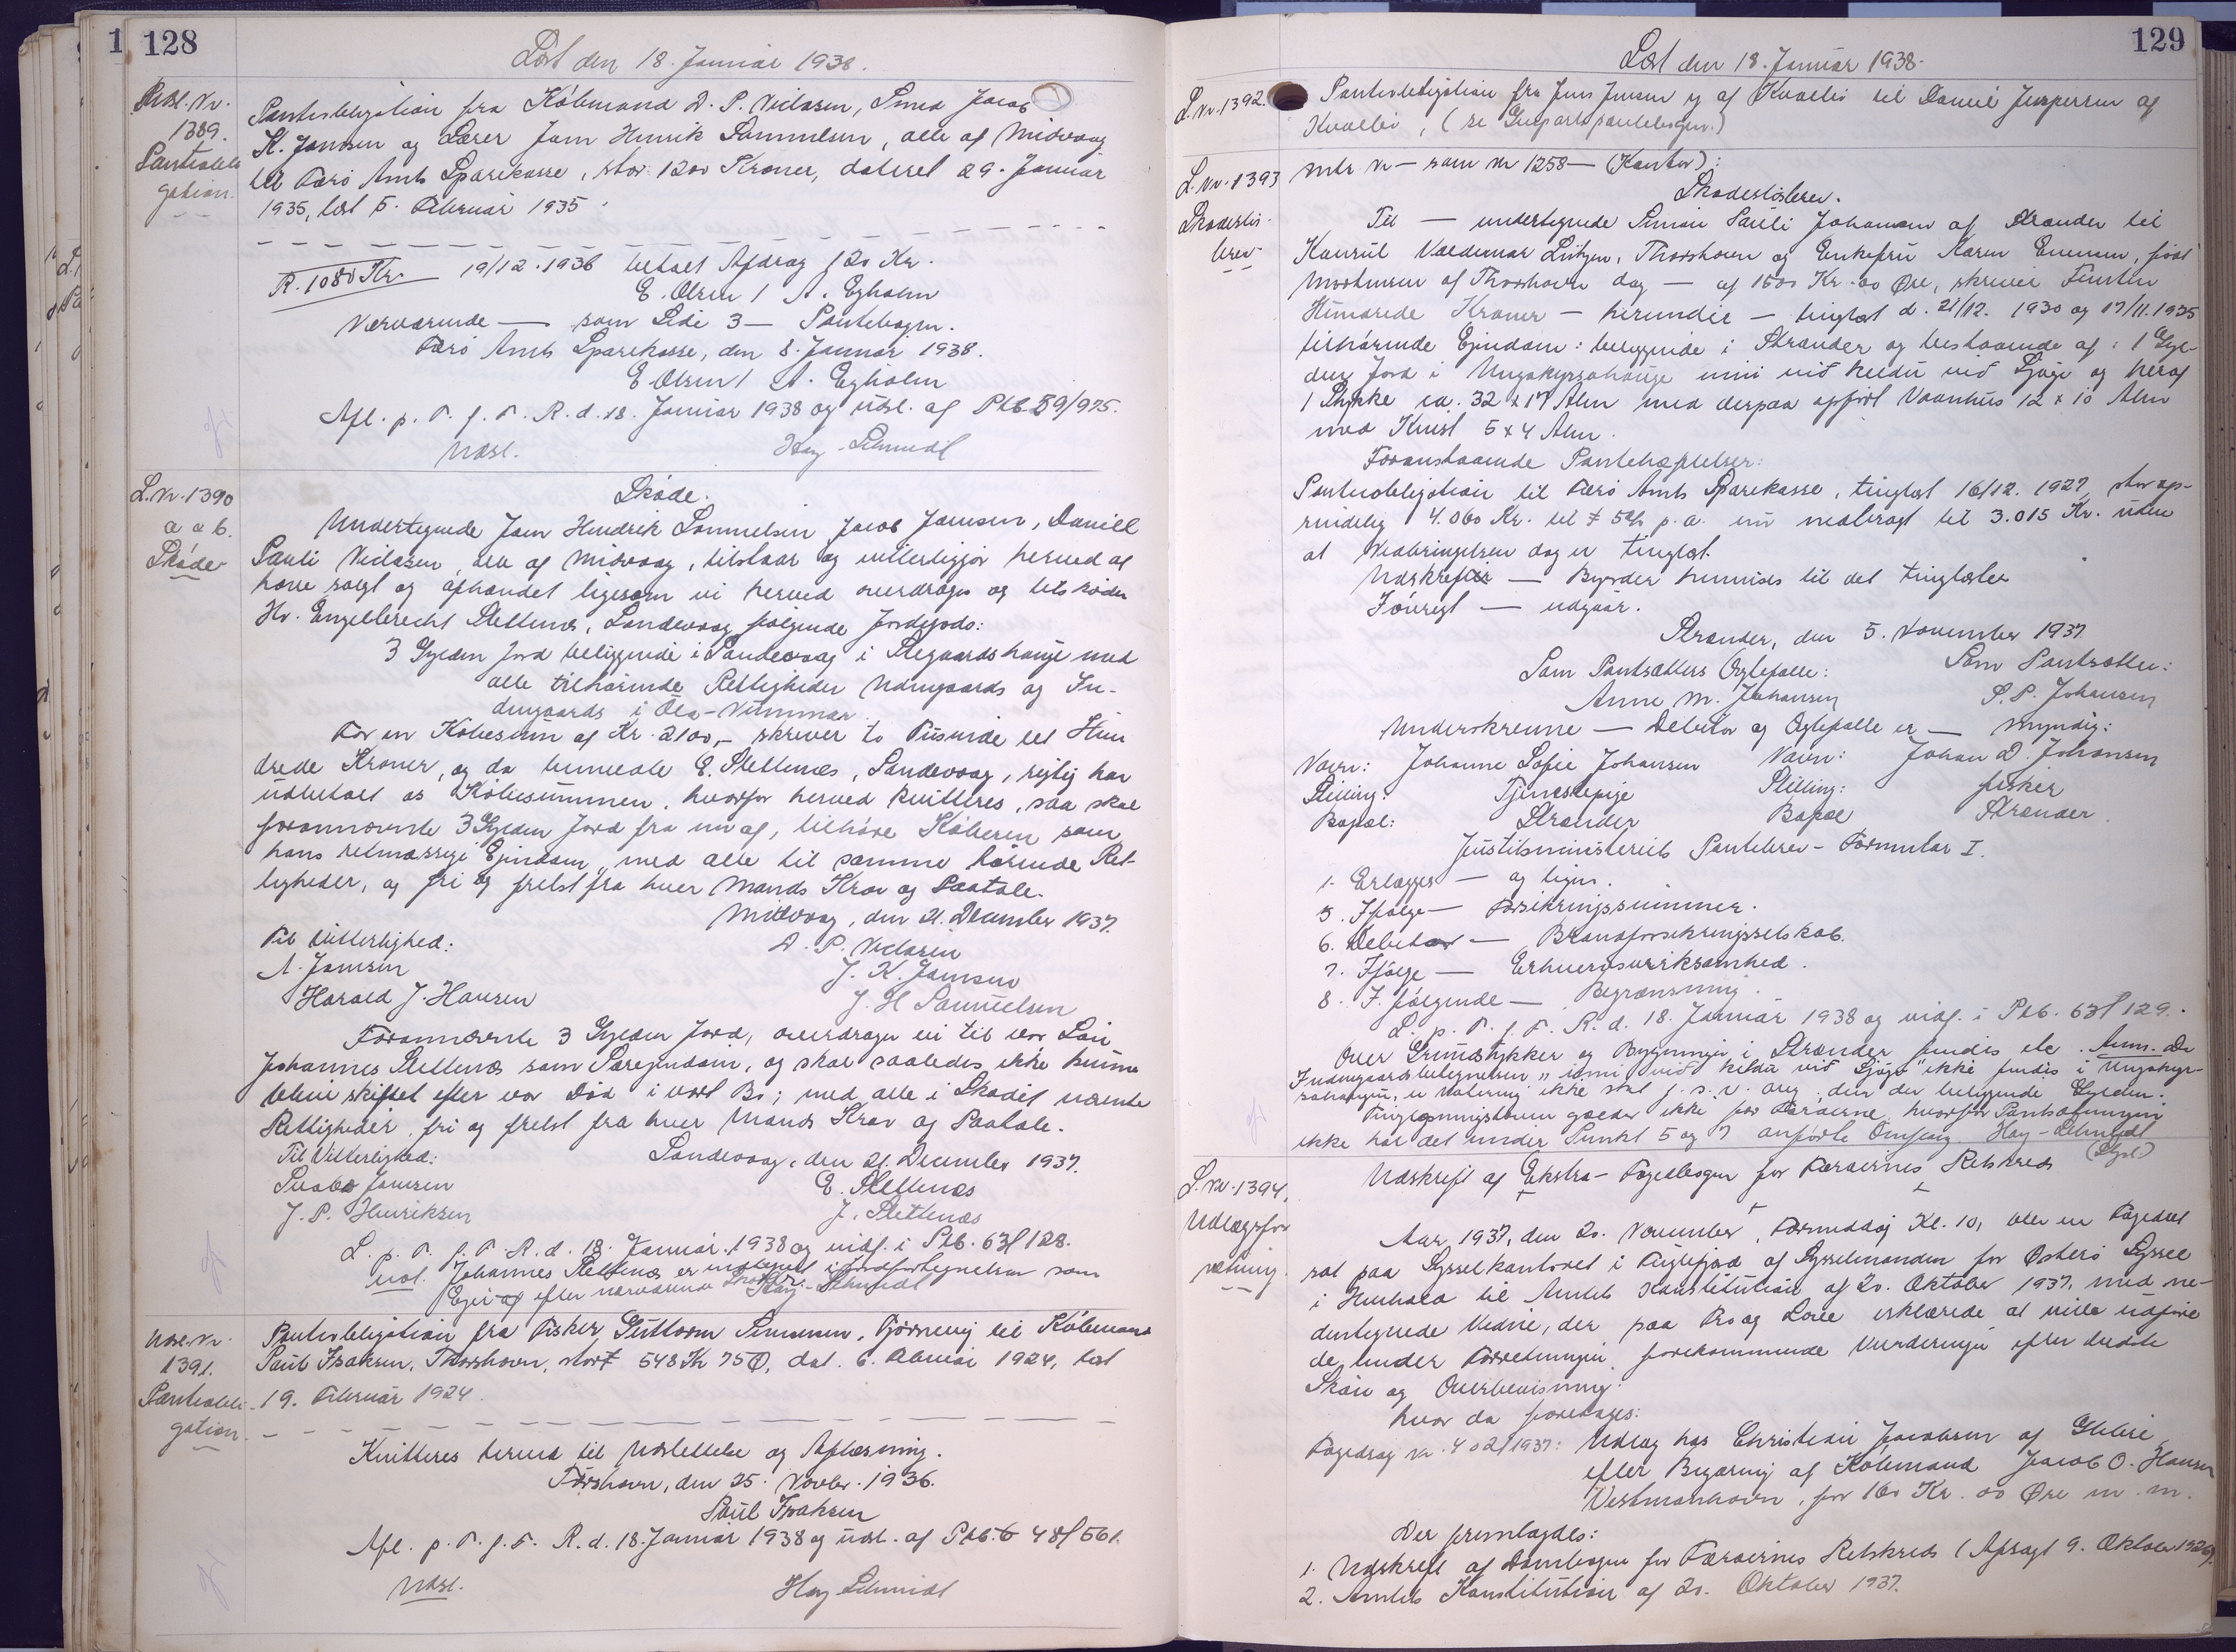 128
Læst den 18. Januar 1938.
Udsl. Nr.
1389.
Panteobli-
gation.
Panteobligation fra Købmand D. P. Niclasen, Smed Jacob
K. Jamsen og Lærer Jam Henrik Sammelsen, alle af Midvaag
til Færø Amts Sparekasse, stor 1200 Kroner, dateret 29. Januar
1935, læst 5. Februar 1935.
R. 1080 Kr. 19/12.1936 betalt Afdrag 120 Kr.
E. Olsen / A. Egholm
Nærværende — som Side 3 — Pantebogen.
Færø Amts Sparekasse, den 8. Januar 1938.
E Olsen / A. Egholm
Afl. p. T. f. F. R. d. 18. Januar 1938 og udsl. af Ptb. 59/975.
Udsl. Hay-Schmidt
L. Nr. 1390
a a b.
Skøde
Skøde.
Undertegnede Jam Hendrik Sammelsen Jacob Jamsen, Daniel
Pauli Niclasen, alle af Midvaag, tilstaar og vitterliggør herved at
have solgt og afhændet ligesom vi herved overdrager og tilskøder
Hr. Engelbrecht Slettenes, Sandevaag følgende Jordegods:
3 Gylden Jord beliggende i Sandevaag i Stegaardshauge med
alle tilhørende Rettigheder Udengaards og In-
dengaards i Ole-Nummar.
For en Købesum af Kr. 2100,- skriver to Tusinde et Hun
drede Kroner, og da bemeldte E. Slettenes, Sandevaag, rigtig har
udbetalt os Købesummen, hvorfor herved kvitteres, saa skal
forannævnte 3 Gylden Jord fra nu af, tilhøre Køberen som
hans retmæssige Ejendom, med alle til samme hørende Ret-
tigheder, og fri og frelst fra hver Mands Krav og Paatale.
Midvaag, den 21. December 1937.
Til Vitterlighed: D. P. Niclasen
A. Jamsen J. K. Jamsen
Harald J. Hansen J. H Samuelsen
Forannævnte 3 Gylden Jord, overdrager vi til vor Søn
Johannes Slettenes som Særejendom, og skal saaledes ikke kunne
blive skiftet efter vor Død i vort Bo; med alle i Skødet nævnte
Rettigheder, fri og frelst fra hver Mands Krav og Paatale.
Til Vitterlighed: Sandevaag, den 21. December 1937.
Jamsen E. Slettenes
J. P. Henriksen J. Slettenes
L. p. T. f. F. R. d. 18. Januar 1938 og indf. i Ptb. 63/128.
Johannes Slettenes er indtegnet i Jordfortegnelsen som
Ejer af efter nærværende Skøde. Hay-Schmidt
Udsl. Nr.
1391.
Panteobli-
gation.
Panteobligation fra Fisker Guttorm Simonsen, Tjørnevig til Købmand
Paul Isaksen, Thorshavn, stort 548 Kr 75 Ø, dat. 6. Februar 1924, læst
19. Februar 1924.
Kvitteres herved til Udslettelse og Aflæsning.
Tórshavn, den 25. Novbr. 1936.
Paul Isaksen
Afl. p. T. f. F. R. d. 18. Januar 1938 og udsl. af Ptb. 48/561.
Udsl. Hay Schmidt
129
Læst den 18. Januar 1938.
L. Nr. 1392.
Panteobligation fra Jens Jensen af Kvalbø til Daniel Jespersen af
Kvalbø, (se Genpartspantebogen.)
L. Nr. 1393
Skadesløs-
brev
Mtr. Nr — som Nr 1258 — (Kontor):
Skadesløsbrev.
Til — undertegnede Simon Pauli Johansen af Strænder til
Konsul Valdemar Lützen, Thorshavn og Enkefru Karen Enersen, født
Mortensen af Thorshavn dog — af 1500 Kr. 00 Øre, skriver Femten
Hundrede Kroner — herunder — tinglæst d. 21/12. 1930 og 17/11. 1935
tilhørende Ejendom: beliggende i Strænder og bestaaende af: 1 Gyl-
den Jord i Ungakyrsahauge inni við keldu við Gjógv og heraf
1 Stykke ca. 32 x 17 Alen med derpaa opført Vaanhus 12 x 10 Alen
med Kvist 5 x 4 Alen.
Foranstaaende Pantehæftelser:
Panteobligation til Færø Amts Sparekasse, tinglæst 16/12. 1927, stor op-
rindelig 4.060 Kr. til 5 % p.a. nu nedbragt til 3.015 Kr. uden
at Nedbringelsen dog er tinglæst.
Udskrift — Byrder henvises til det tinglæste
Iøvrigt — udgaar.
Strænder, den 5. November 1937.
Som Pantsætters Ægtefælle: Som Pantsætter:
Anne M. Johansen S. P. Johansen
Underskrevne — Debitor og Ægtefælle er — myndig:
Navn: Johanne Sofie Johansen Navn: Johan D. Johansen
Stilling: Tjenestepige Stilling: fisker
Bopæl: Strænder Bopæl Strænder.
Justitsministeriets Pantebrev - Formular I.
1. Erlægges — og lignr.
5. Ifølge — Forsikringssummer.
6. Debitor — Brandforsikringsselskab.
7. Ifølge — Erhvervsvirksomhed.
8. I følgende — Begrænsning.
L. p. T. f. F. R. d. 18. Januar 1938 og indf. i Ptb. 63/129.
Over Grundstykker og Bygninger i Strænder findes ele. Anm. Da
Indengaardsbetegnelsen "inni við keldu við Gjógv" ikke findes i Ungakyr-
sahaugen, er Notering ikke sket f. s. v. ang. den der beliggende Gylden.
Tinglysningsloven gælder ikke for Færøerne, hvorfor Pantsætningen
ikke har det under Punkt 5 og 7 anførte Omfang. Hay-Schmidt
L. Nr. 1394.
Udlægsfor
retning.
Udskrift af Ekstra-Fogedbogen for Færøernes Retskreds
Aar, 1937, den 20. November, Formiddag Kl. 10, blev en Fogedret
sat paa Sysselkontoret i Fuglefjord af Sysselmanden for Østerø Syssel
i Henhold til Amtets Konstitution af 20. Oktober 1937, med ne-
dentegnede Vidner, der paa Tro og Love erklærede at ville udføre
de under Forretningen forekommende Vurderinger efter bedste
Skøn og Overbevisning.
hvor da foretages:
Fogedsag Nr. 402/1937: Udlæg hos Christian Jacobsen af Glibre
efter Begæring af Købmand Jacob O. Hansen
Vestmanhavn, for 160 Kr. 00 Øre m.m.
Der fremlagdes:
1. Udskrift af Dombogen for Færøernes Retskreds (Afsagt 9. Oktober 1926).
2. Amtets Konstitution af 20. Oktober 1937.